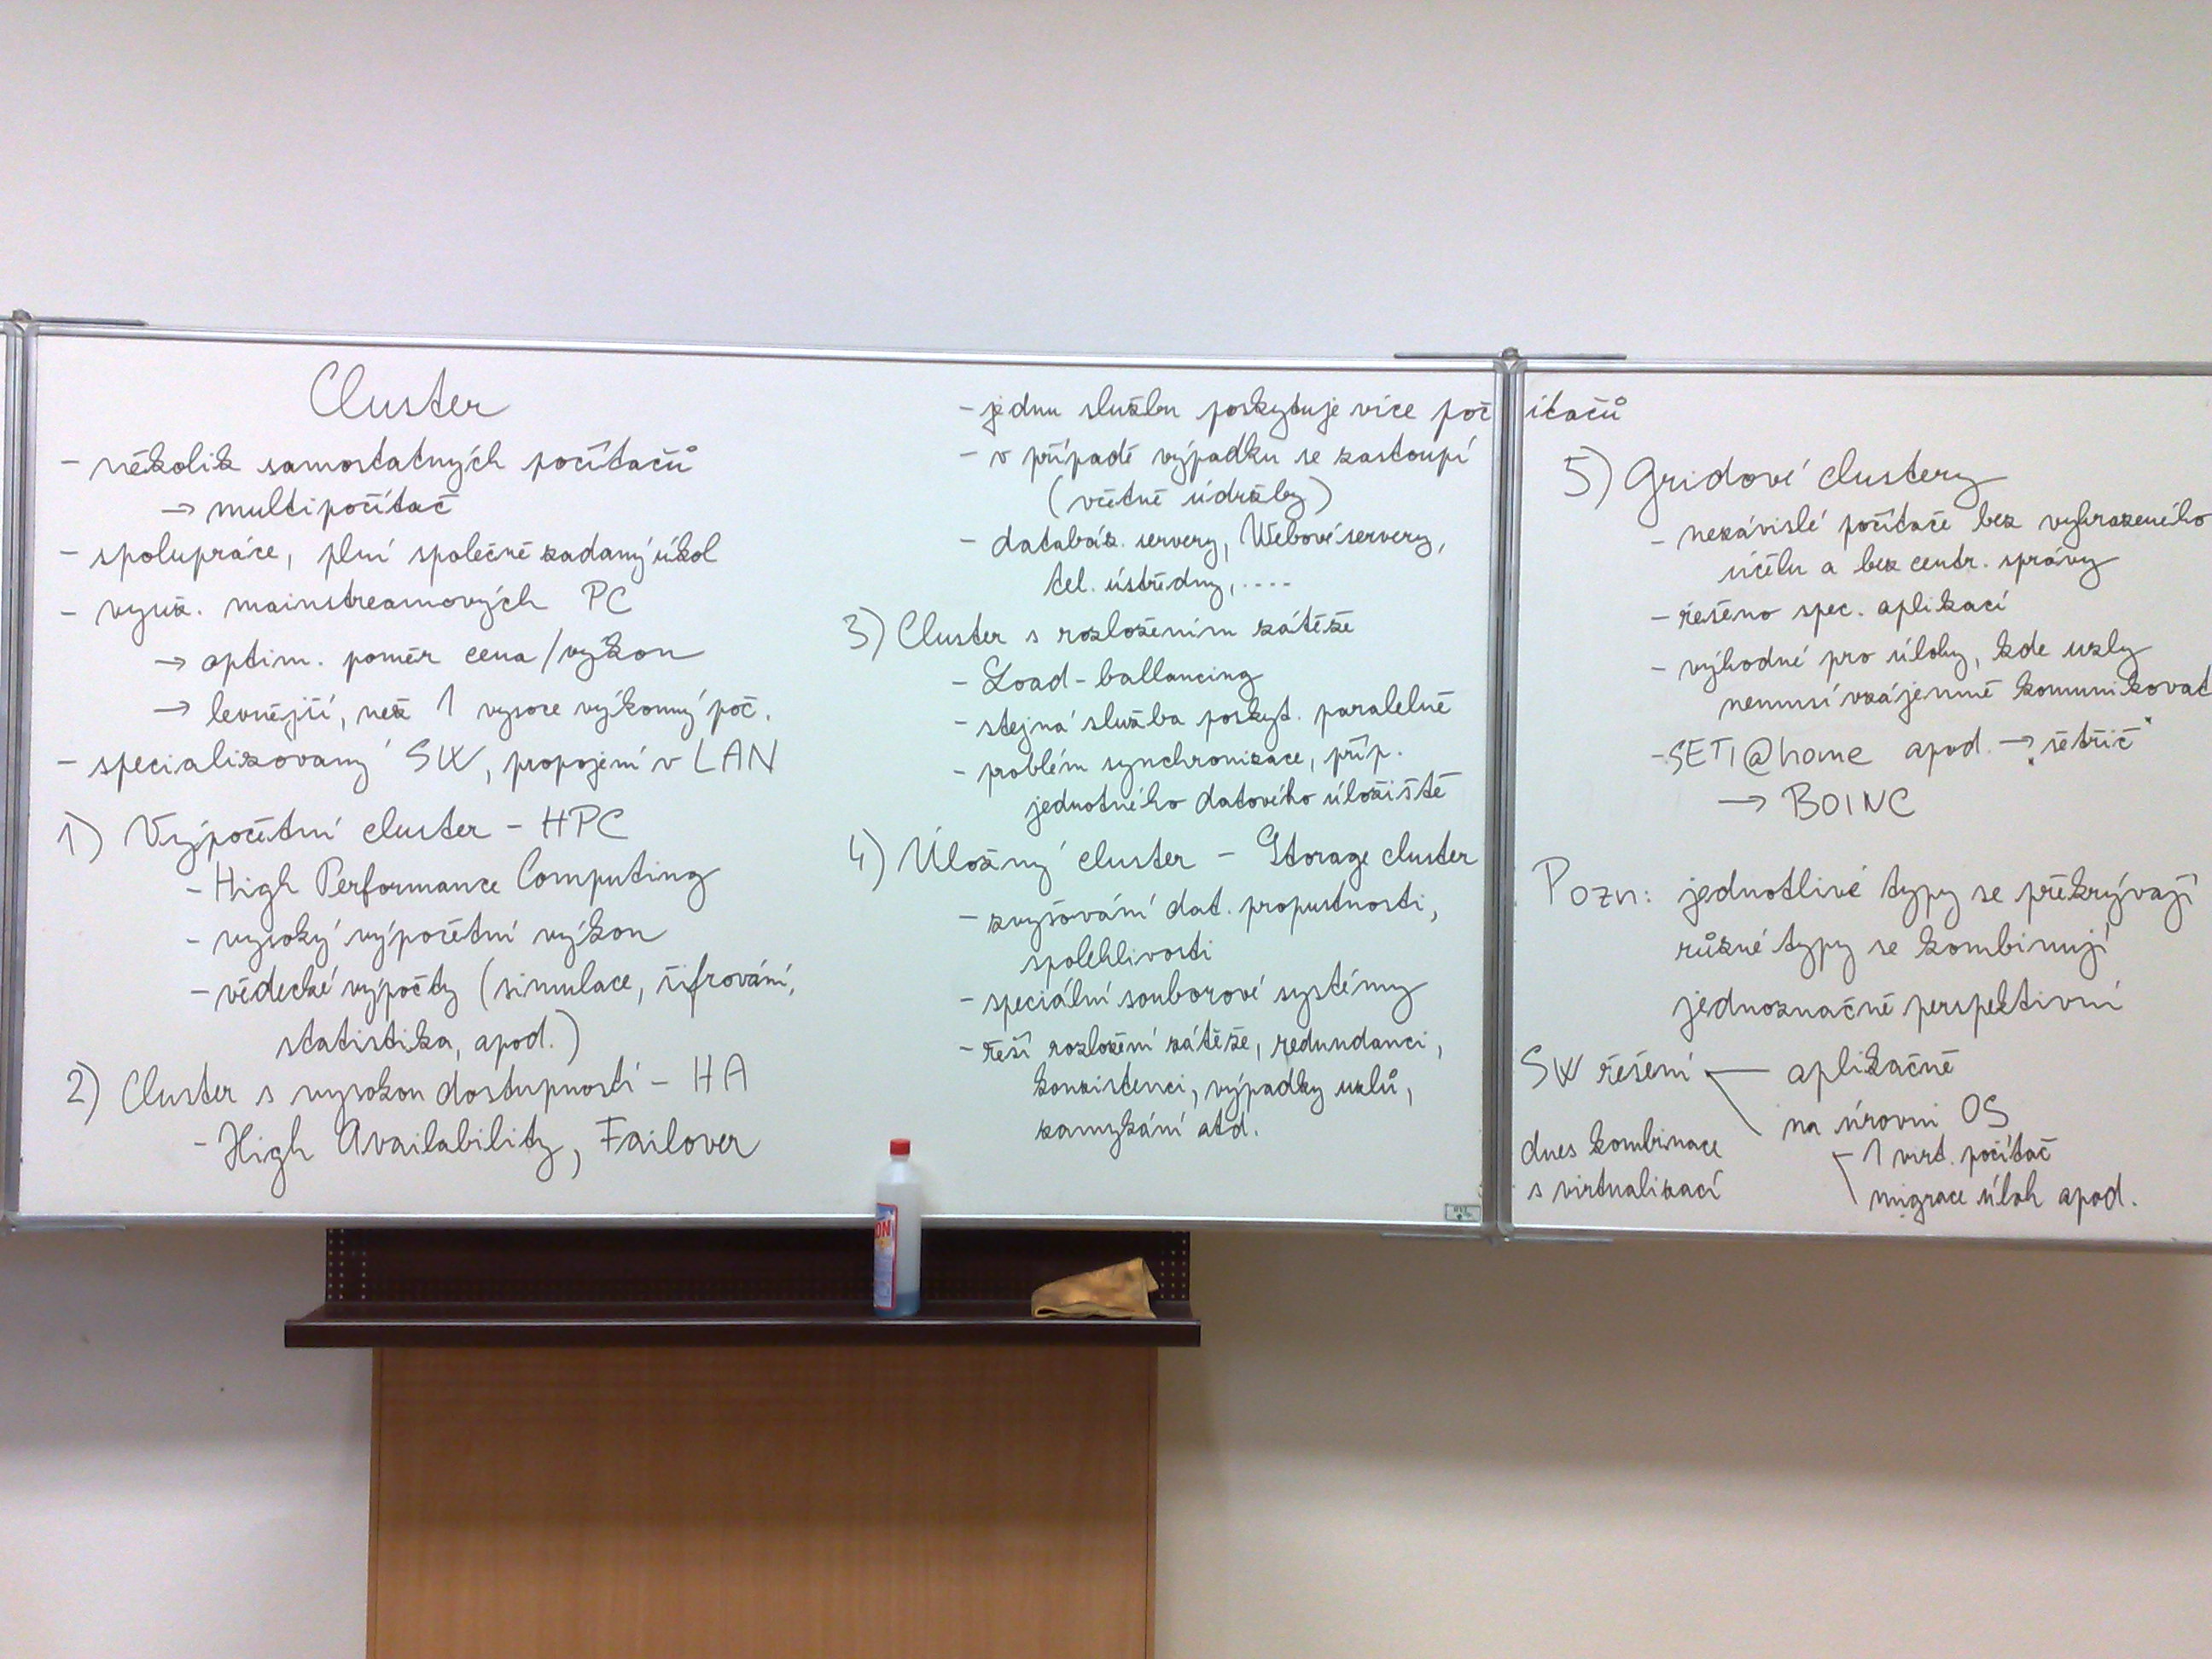 Cluster
- několik samostatných počítačů
→ multipočítač
- spolupráce, plní společně zadaný úkol
- využ. mainstreamových PC
→ optim. poměr cena/výkon
→ levnější, než 1 vysoce výkonný poč.
- specializovaný SW, propojení v LAN
1) Výpočetní cluster - HPC
- High Performance Computing
- vysoký výpočetní výkon
- vědecké výpočty (simulace, šifrování,
statistika, apod.)
2) Cluster s vysokou dostupností - HA
- High Availability, Failover
- jednu službu poskytuje více počítačů
- v případě výpadku se zastoupí
(včetně údržby)
- databáz. servery, Webové servery,
tel. ústředny, ....
3) Cluster s rozložením zátěže
- Load-ballancing
- stejná služba poskyt. paralelně
- problém synchronizace, příp.
jednotného datového úložiště
4) Úložný cluster - Storage cluster
- zvyšování dat. propustnosti,
spolehlivosti
- speciální souborové systémy
- řeší rozložení zátěže, redundanci,
konzistenci, výpadky uzlů,
zamykání atd.
5) Gridové clustery
- nezávislé počítače bez vyhrazeného
účelu a bez centr. správy
- řešeno spec. aplikací
- výhodné pro úlohy, kde uzly
nemusí vzájemně komunikovat
- SETI@home apod. → šetřič
→ BOINC
Pozn: jednotlivé typy se překrývají
různé typy se kombinují
jednoznačně perspektivní
SW řešení — aplikačně
na úrovni OS
1 virt. počítač
migrace úloh apod.
dnes kombinace
s virtualizací
ON